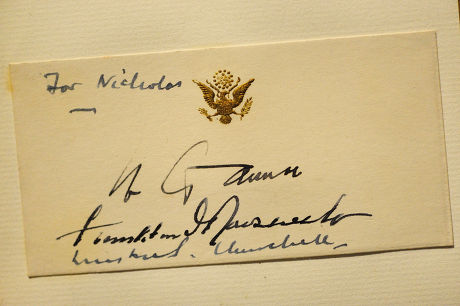 For Nicholas
Franklin D Roosevelt
Winston S. Churchill